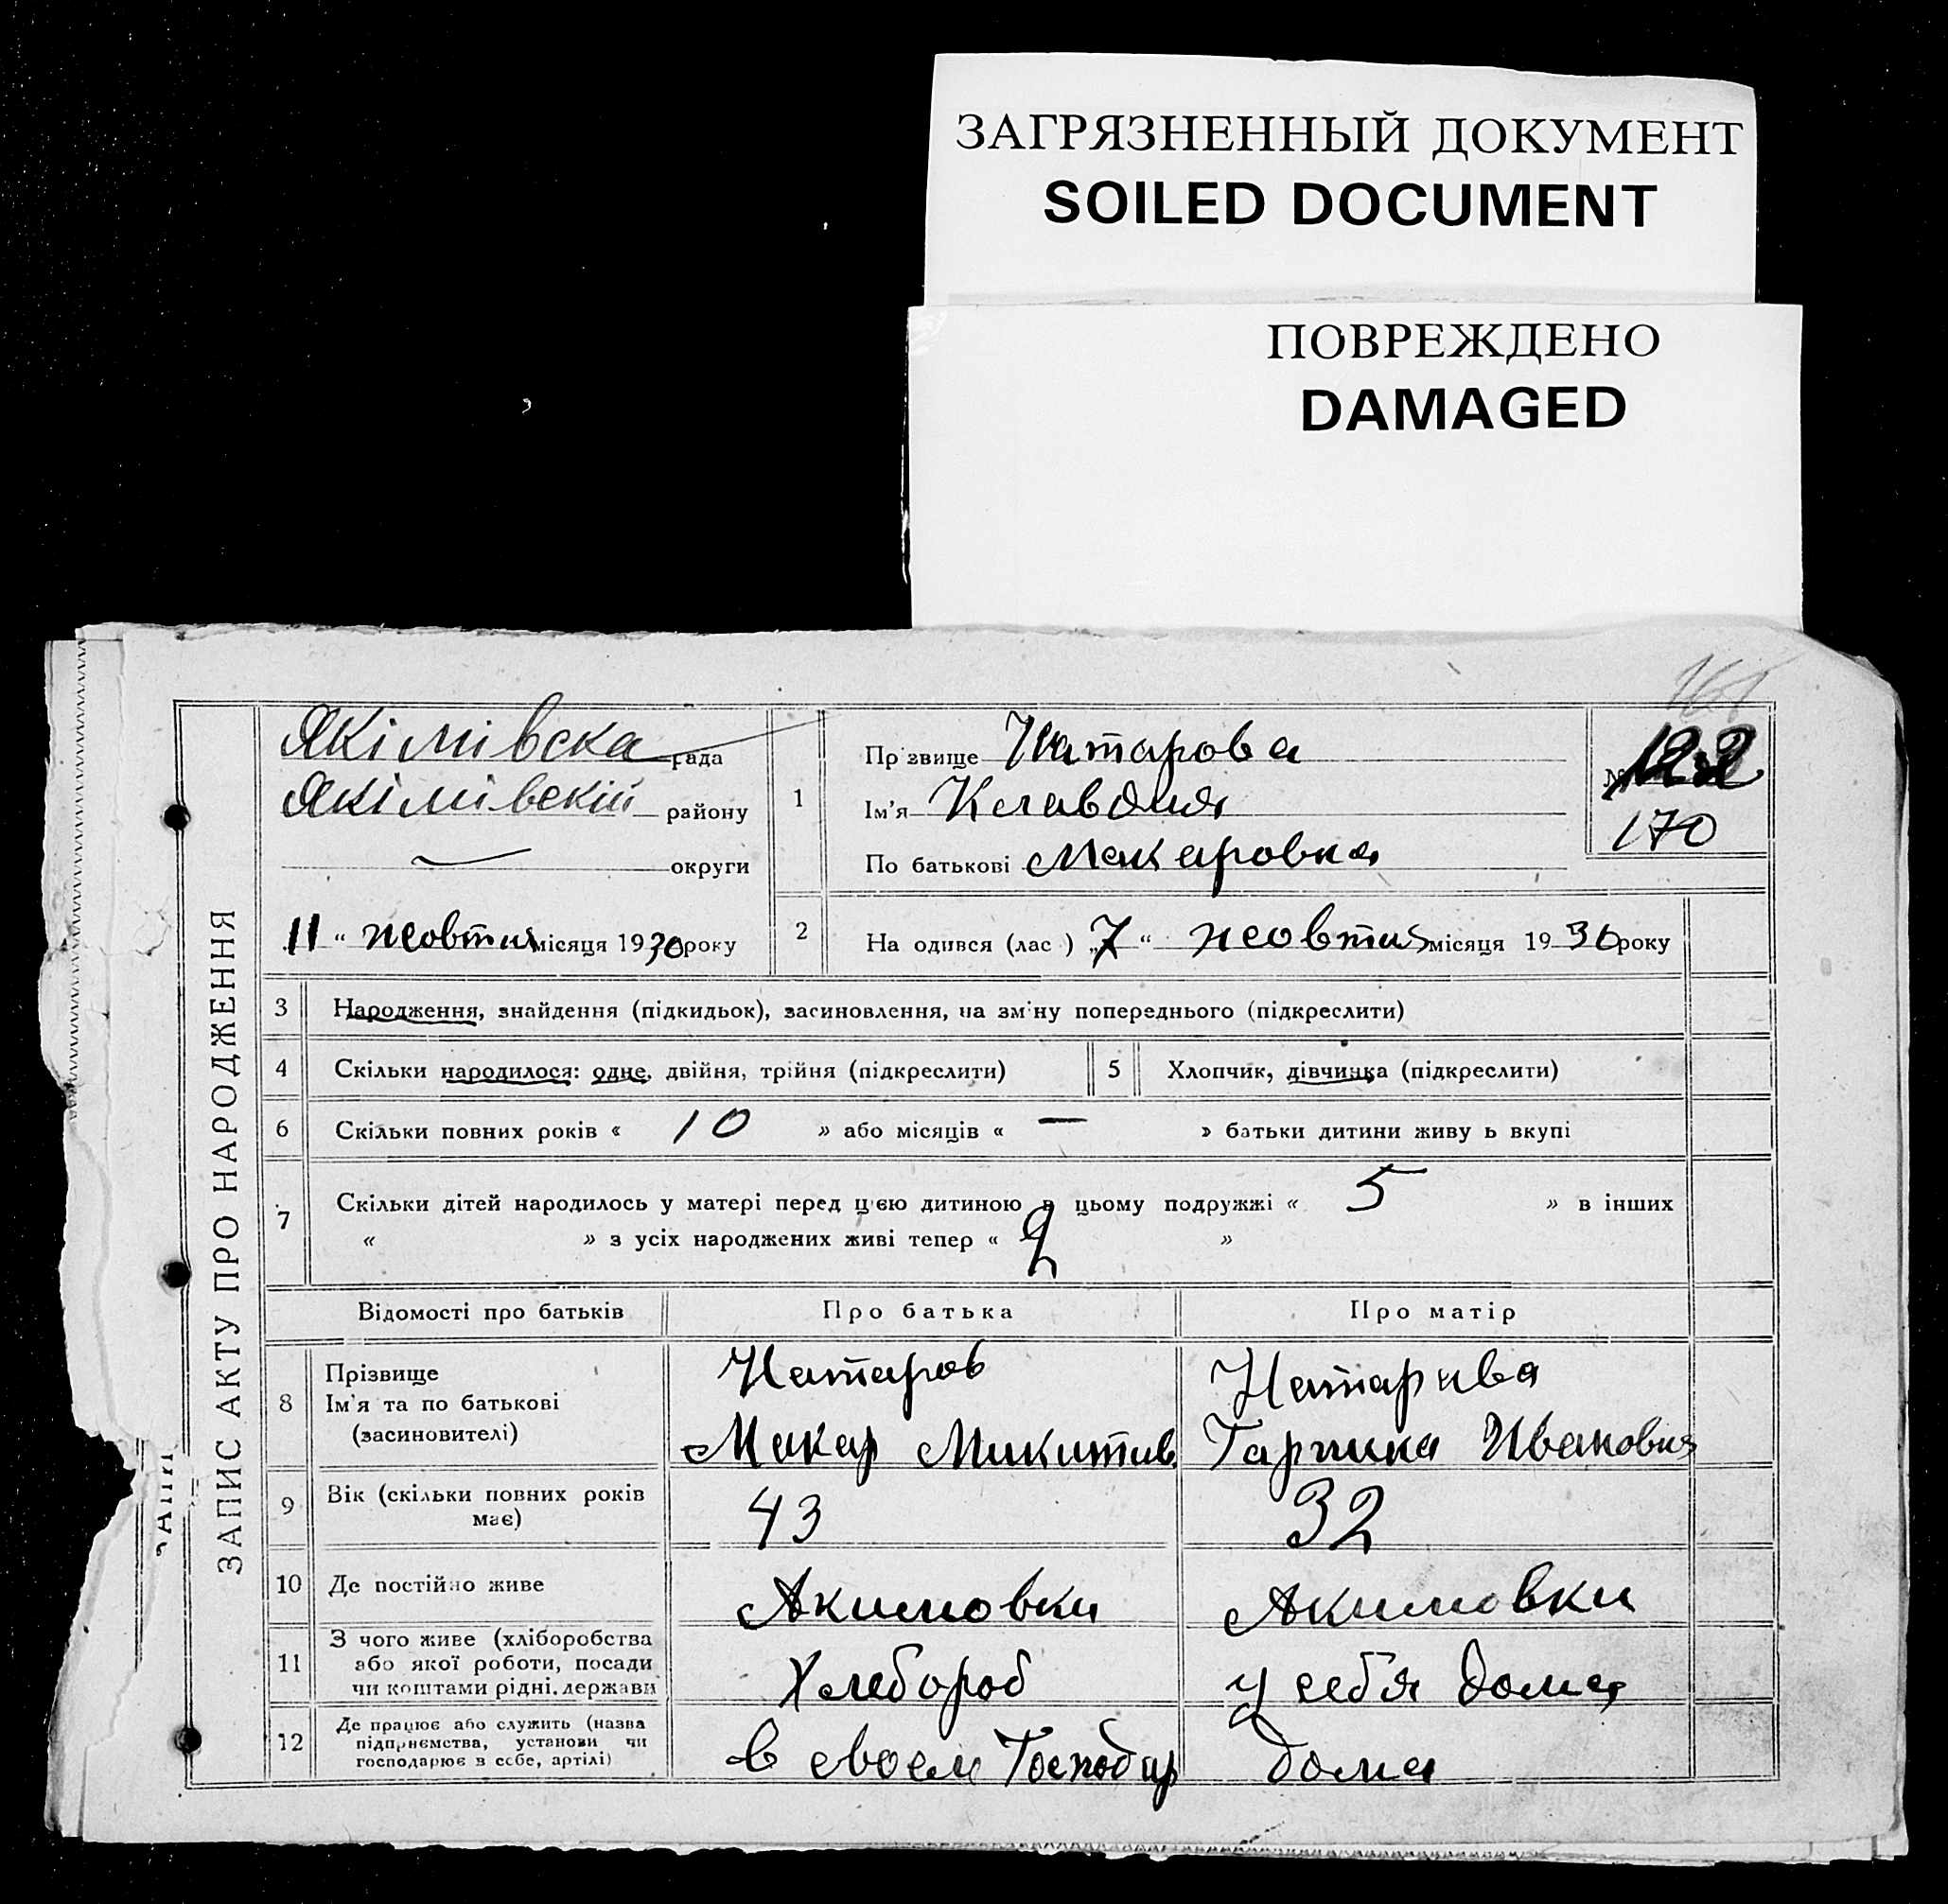 ЗАГРЯЗНЕННЫЙ ДОКУМЕНТ
SOILED DOCUMENT
ПОВРЕЖДЕНО
DAMAGED
ЗАПИС АКТУ ПРО НАРОДЖЕННЯ
Якімівска рада
Якімівскій району
округи
11 " жовтня місяця 1930 року
1
Прізвище Натарова
Ім'я Клавдия
По батькові Макаровна
№ 122
170
2 На одився (лас ) „7 " жовтня місяця 1930 року
3 Народження, знайдення (підкидьок), засиновлення, на зміну попереднього (підкреслити)
4 Скільки народилося: одне, двійня, трійня (підкреслити)
5 Хлопчик, дівчинка (підкреслити)
6 Скільки повних років « 10 » або місяців « — » батьки дитини живу ь вкупі
7 Скільки дітей народилось у матері перед цією дитиною в цьому подружжі « 5 » в інших
« » з усіх народжених живі тепер « 2 »
Відомості про батьків Про батька Про матір
8 Прізвище
Ім'я та по батькові
(засиновителі)
Натаров
Макар Микитив.
Ивановна
9 Вік (скільки повних років
має)
43 32
10 Де постійно живе Акимовки Акимовки
11 З чого живе (хліборобства
або якої роботи, посади
чи коштами рідні, держави
Хлебороб у себя дома
12 Де працює або служить (назва
підприємства, установи чи
господарює в себе, артілі)
в своем Господар дома